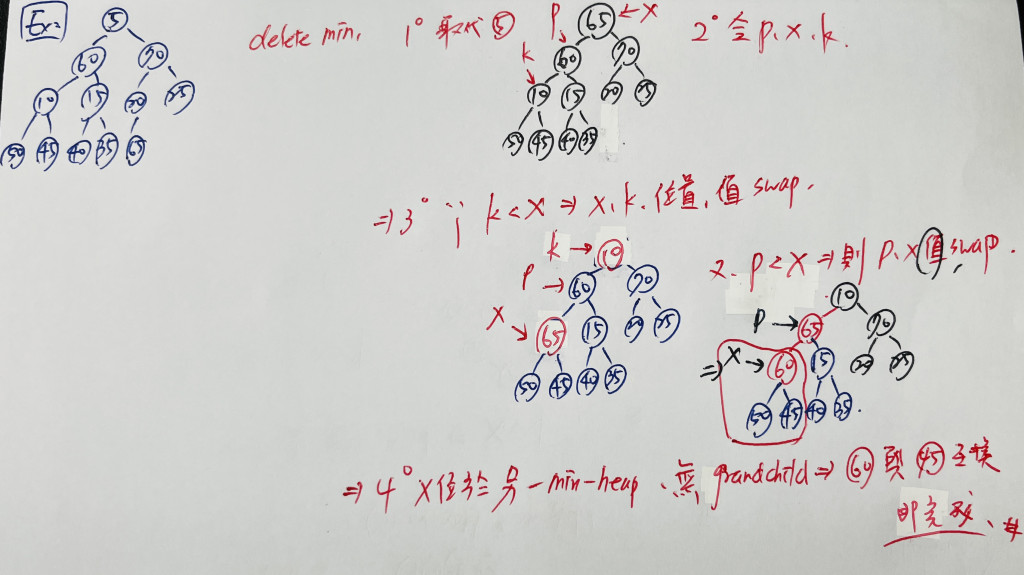 Ex2
5
60 90
10 15 20 25
50 45 40 35 65
delete min, 1° 取代 5
P 65 ← X
k 60 90
10 15 20 25
50 45 40 35
2° 令 p、x、k.
⇒ 3° ∵ k < X ⇒ x、k. 位置、值 swap.
k → 10
P → 60 90
X 65 15 20 25
50 45 40 35
又、P < X ⇒ 則 P、X 值 swap.
10
P → 65 90
⇒ X → 60 15 20 25
50 45 40 35.
⇒ 4° X 位於另一 min-heap、無 grandchild ⇒ 60 與 45 互換
即完成、#